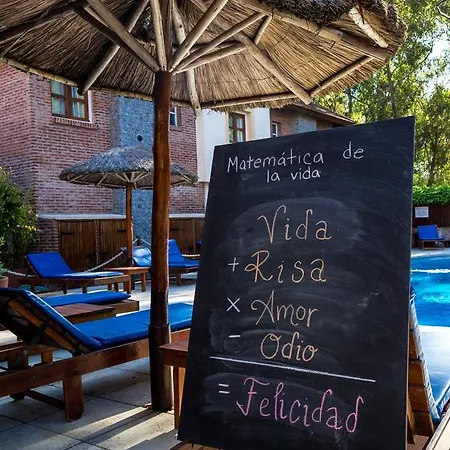 Matemática de
la vida
Vida
+ Risa
× Amor
- Odio
= Felicidad